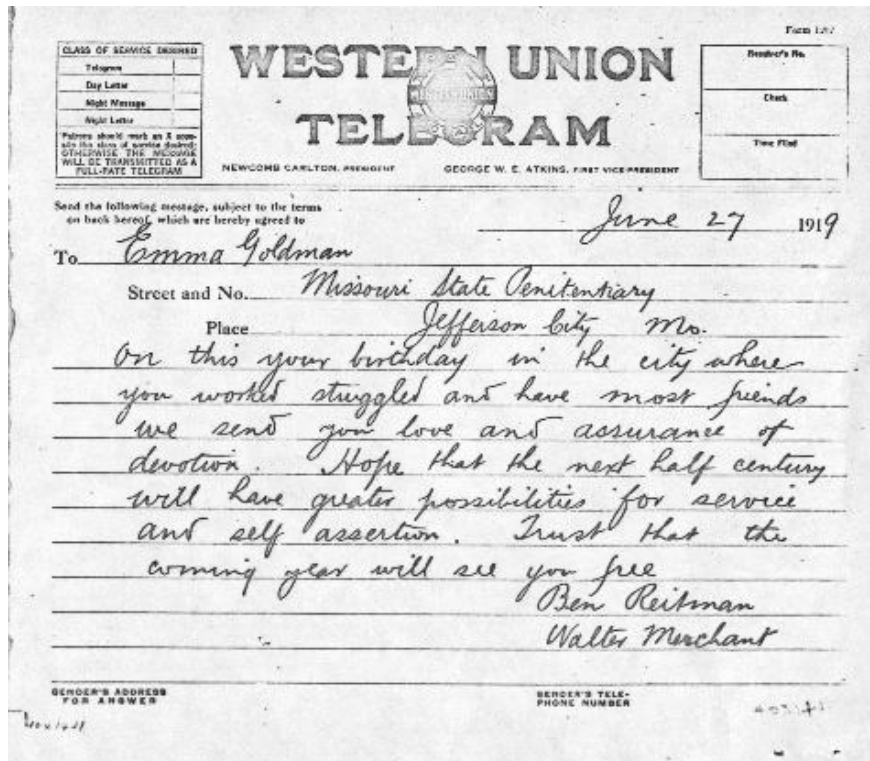 CLASS OF SERVICE DESIRED
Telegram
Day Letter
Night Message
Night Letter
Patrons should mark an X oppo-
site the class of service desired:
OTHERWISE THE MESSAGE
WILL BE TRANSMITTED AS A
FULL-RATE TELEGRAM
WESTERN UNION
TELEGRAM
NEWCOMB CARLTON, PRESIDENT
GEORGE W. E. ATKINS, FIRST VICE-PRESIDENT
Form
Receiver's No.
Check
Time Filed
Send the following message, subject to the terms
on back hereof, which are hereby agreed to
June 27 1919
To Emma Goldman
Street and No. Missouri State Penitentiary
Place Jefferson City Mo.
On this your birthday in the city where
you worked struggled and have most friends
we send you love and assurance of
devotion. Hope that the next half century
will have greater possibilities for service
and self assertion. Trust that the
coming year will see you free
Ben Reitman
Walter Merchant
SENDER'S ADDRESS
FOR ANSWER
SENDER'S TELE-
PHONE NUMBER